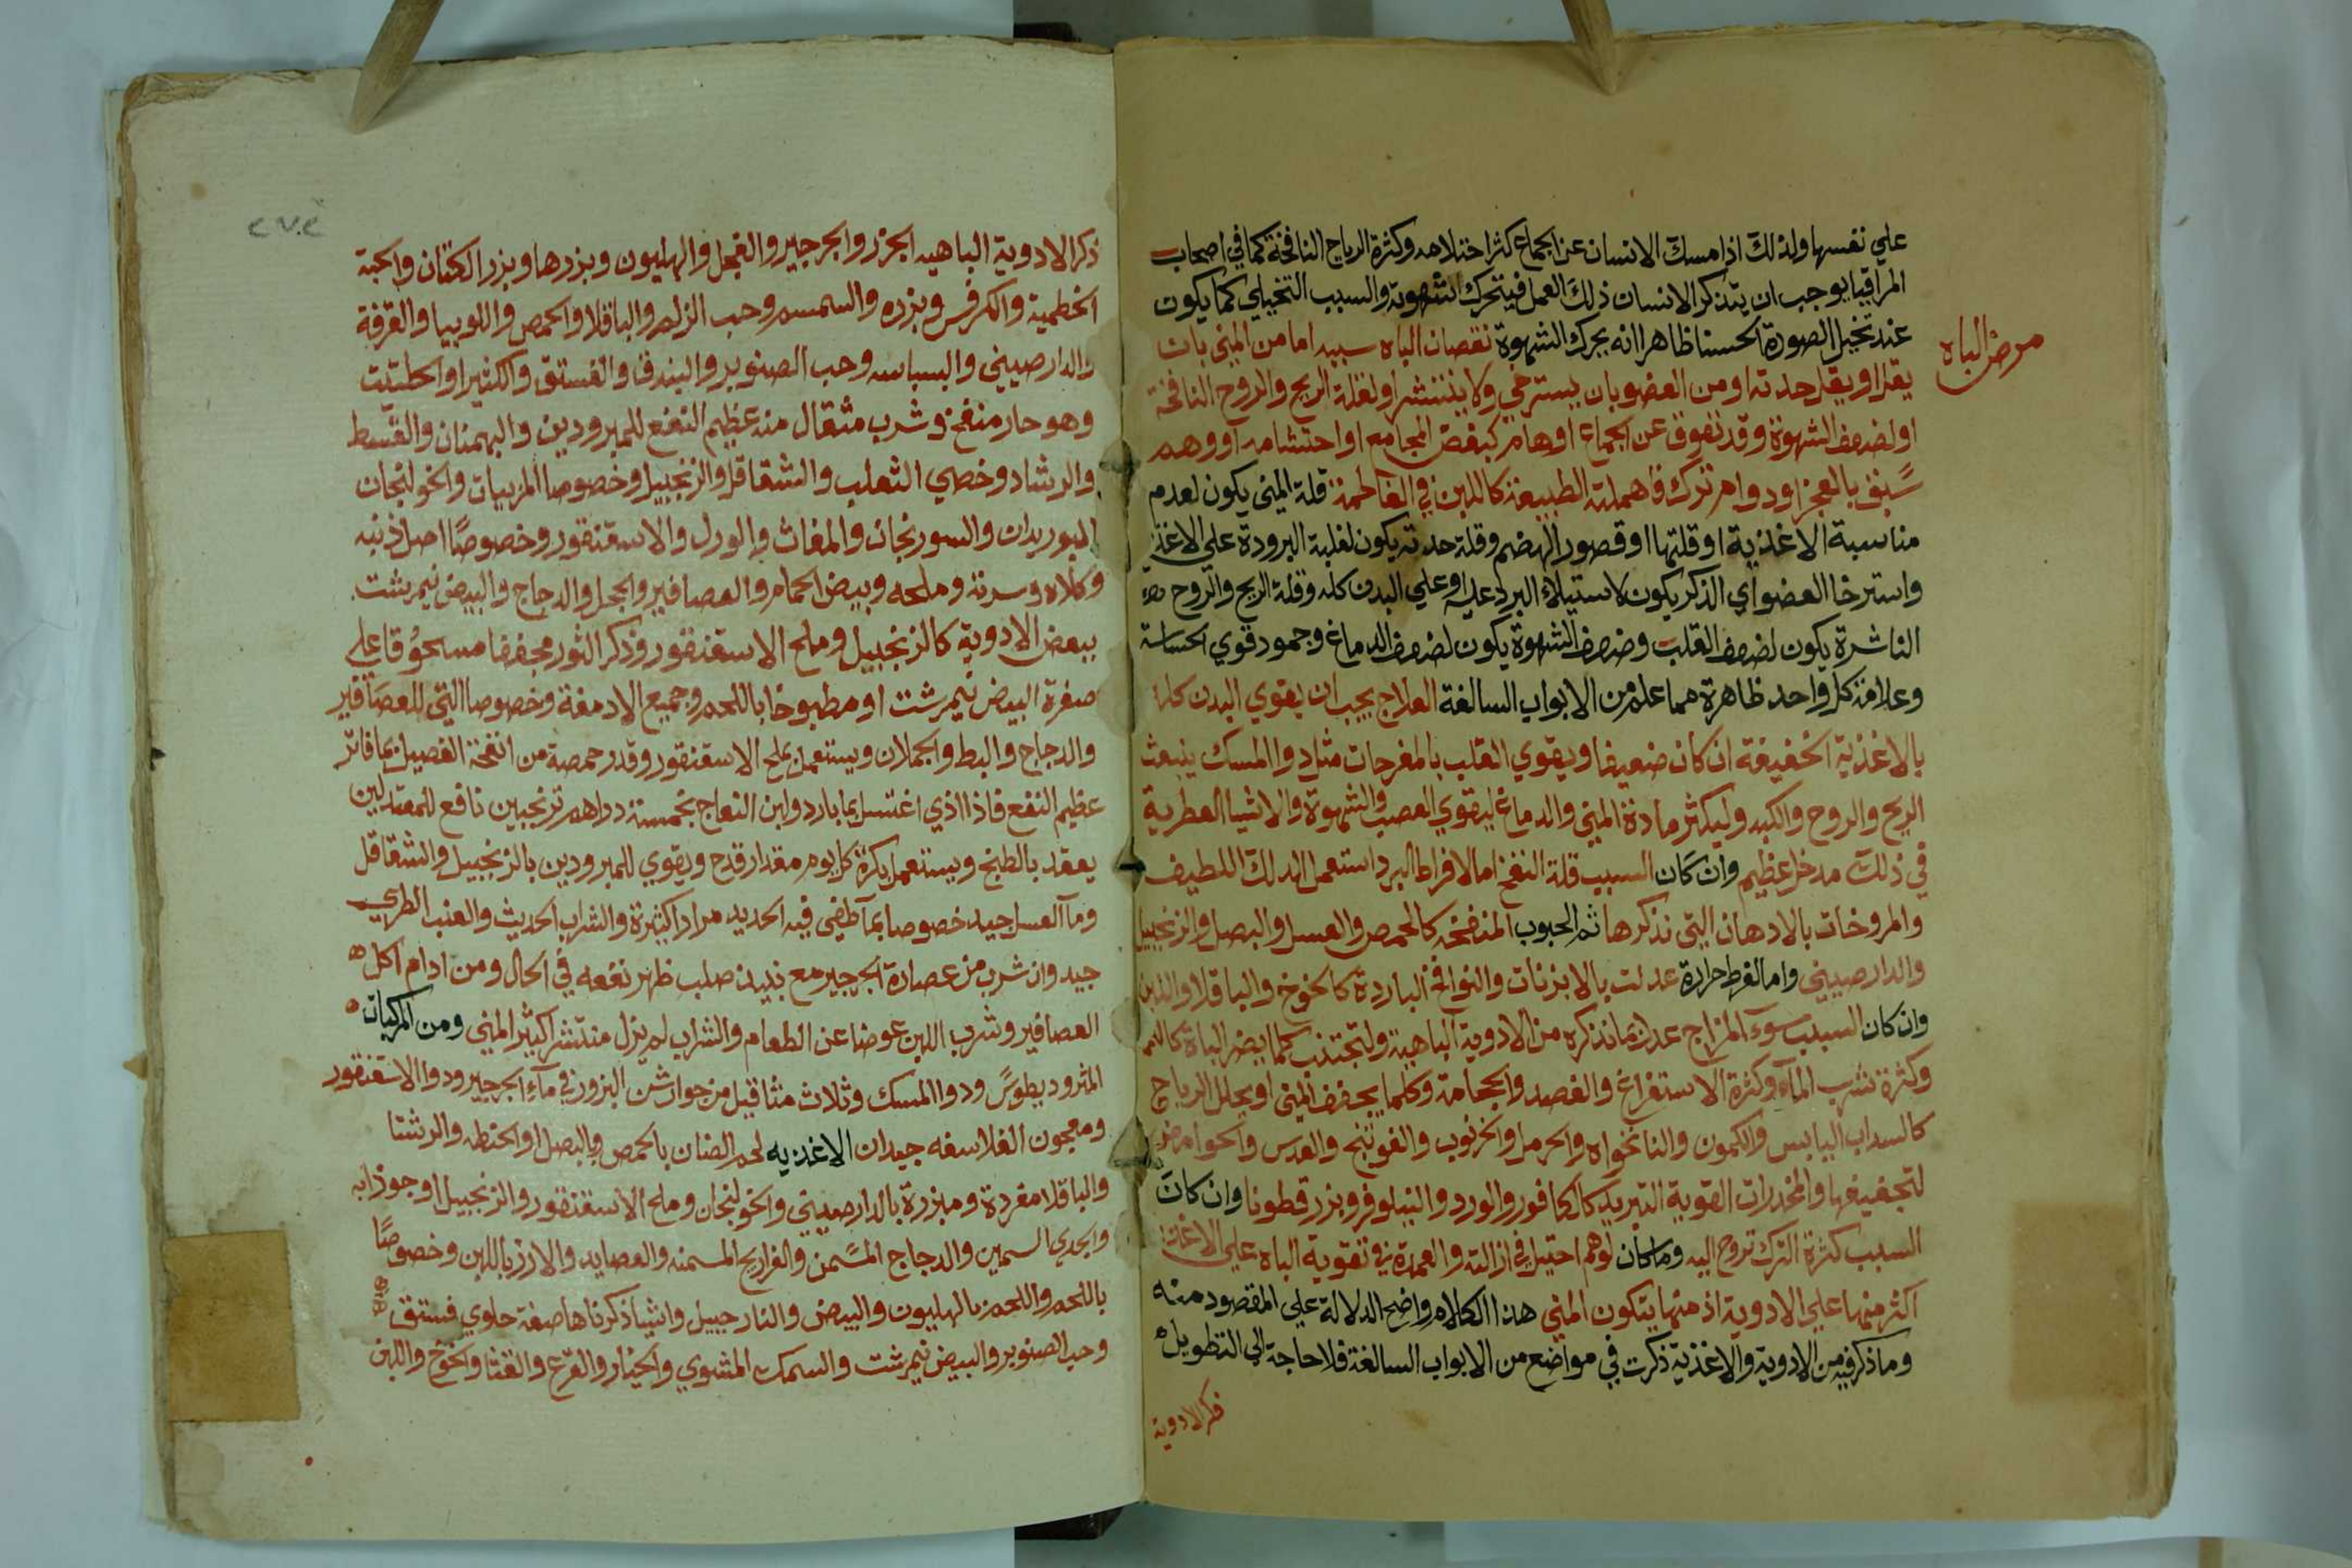 علي نفسها ولذلك اذا مسك الانسان عن الجماع كثر احتلامه وكثرة الرياح النافخة كما في اصحاب
المراقيا يوجب ان يتذكر الانسان ذلك العمل فيتحرك شهوته والسبب التخيلي كما يكون
عند تخيل الصورة الحسنا ظاهرا انه يحرك الشهوة نقصان الباه سببه اما من المني بان
مرض الباه
يقل او يقل حدته او من العضو بان يسترخي ولا ينتشر او لقلة الريح والروح النافخة
او لضعف الشهوة وقد تعوق عن الجماع اوهام كبغض المجامع او احتشامه او وهم
سبق بالعجز او دوام ترك فاهملته الطبيعة كاللبن في الفاطمة قلة المني يكون لعدم
مناسبة الاغذية او قلتها او قصور الهضم وقلة حدته يكون لغلبة البرودة علي
واسترخا العضو اي الذكر يكون لاستيلاء البرد عليه او علي البدن كله وقلة الريح والروح
الناشرة يكون لضعف القلب وضعف الشهوة يكون لضعف الدماغ وجمود قوي الحساسة
وعلامة كل واحد ظاهرة مما علم من الابواب السالفة العلاج يجب ان يقوي البدن كله
بالاغذية الخفيفة ان كان ضعيفا ويقوي القلب بالمفرحات مثل دوا المسك ينبعث
الريح والروح والكبد وليكثر مادة المني والدماغ ليقوي العصب والشهوة والاشيا العطرية
في ذلك مدخل عظيم وان كان السبب قلة النفخ اما لافراط البرد استعمل الدلك اللطيف
والمروخات بالادهان التي نذكرها ثم الحبوب المنفخه كالحمص والعسل والبصل والزنجبيل
والدارصيني واما الفرط حرارة عدلت بالابزنات والنوافخ الباردة كالخوخ والباقلا واللبن
وان كان السبب سوء المزاج عدل بما نذكره من الادوية الباهية ولتجتنب كلما يضر الباة
وكثرة شرب الماء وكثرة الاستفراغ والفصد والحجامة وكلما يجفف المني او يحلل الرياح
كالسداب اليابس والكمون والنانخواه والحرمل والخرنوب والفوتنج والعدس والحوامض
لتجفيفها والمخدرات القوية التبريد كالكافور والورد والنيلوفر وبزر قطونا وان كان
السبب كثرة الترك تروح اليه وما كان لوهم احتيل في ازالته والعمدة في تقوية الباه علي الاغذية
اكثر منها علي الادوية اذ منها يتكون المني هذا الكلام واضح الدلالة علي المقصود منه
وما ذكر فيه من الادوية والاغذية ذكرت في مواضع من الابواب السالفة فلا حاجة الي التطويل
ذكر الادوية
٢٧٢
ذكر الادوية الباهيه الجزر والجرجير والفجل والهليون وبزرها وبزر الكتان والحبة
الخطمية والكرفس وبزره والسمسم وحب الزلم والباقلا والحمص واللوبيا والقرفة
والدارصيني والبسباسه وحب الصنوبر والبندق والفستق والكثيرا والحلتيت
وهو حار منفخ وشرب مثقال منه عظيم النفع للمبرودين والبهمنان والقسط
والرشاد وخصي الثعلب والشقاقل والزنجبيل وخصوصا المربيات والخولنجان
البوريدان والسورنجان والمغاث والورل والاسقنقور وخصوصًا اصل ذنبه
وكلاه وسرته وملحه وبيض الحمام والعصافير والحجل والدجاج والبيض نيمرشت
ببعض الادوية كالزنجبيل وملح الاسقنقور وذكر الثور مجففا مسحوقا علي
صفرة البيض نيمرشت او مطبوخا باللحم وجميع الادمغة وخصوصا التي للعصافير
والدجاج والبط والحملان ويستعمل ملح الاسقنقور وقدر حمصة من انفحة الفصيل بما فاتر
عظيم النفع فاذا اذي اغتسل بما بارد ولبن النعاج بخمسة دراهم ترنجبين نافع للمعتدلين
يعقد بالطبخ ويستعمل بكرة كل يوم مقدار قدح ويقوي للمبرودين بالزنجبيل والشقاقل
وما العسل جيد خصوصا بما طفي فيه الحديد مرارا كثيرة والشراب الحديث والعنب الطري
جيد وان شرب من عصارة الجرجير مع نبيذ صلب ظهر نفعه في الحال ومن ادام اكل
العصافير وشرب اللبن عوضا عن الطعام والشراب لم يزل منتشر كثير المني ومن المركبات
المثروديطوس ودوا المسك وثلاث مثاقيل من جوارشن البزور في ماء الجرجير ودوا الاسقنقور
ومعجون الفلاسفه جيدان الاغذيه لحم الضان بالحمص والبصل او الحنطه والرشتا
والباقلا مفردة ومبزرة بالدارصيني والخولنجان وملح الاسقنقور والزنجبيل او جوذابه
والجدي السمين والدجاج المسمن والفراريج المسمنه والعصايد والارز باللبن وخصوصًا
باللحم واللحم بالهليون والبيض والنارجيل واشيا ذكرناها صفة حلوي فستق
وحب الصنوبر والبيض نيمرشت والسمك المشوي والخيار والقرع والقثا والخوخ واللبن